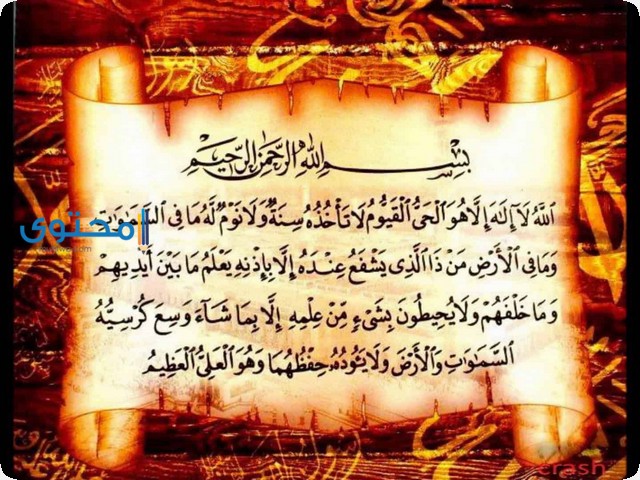 بِسْمِ اللهِ الرَّحْمٰنِ الرَّحِيمِ
اللَّهُ لَآ إِلَٰهَ إِلَّا هُوَ الْحَيُّ الْقَيُّومُ لَا تَأْخُذُهُ سِنَةٌ وَلَا نَوْمٌ لَّهُ مَا فِي السَّمَٰوَٰتِ
وَمَا فِي الْأَرْضِ مَن ذَا الَّذِي يَشْفَعُ عِندَهُ إِلَّا بِإِذْنِهِ يَعْلَمُ مَا بَيْنَ أَيْدِيهِمْ
وَمَا خَلْفَهُمْ وَلَا يُحِيطُونَ بِشَيْءٍ مِّنْ عِلْمِهِ إِلَّا بِمَا شَآءَ وَسِعَ كُرْسِيُّهُ
السَّمَٰوَٰتِ وَالْأَرْضَ وَلَا يَئُودُهُ حِفْظُهُمَا وَهُوَ الْعَلِيُّ الْعَظِيمُ
محتوى
crash